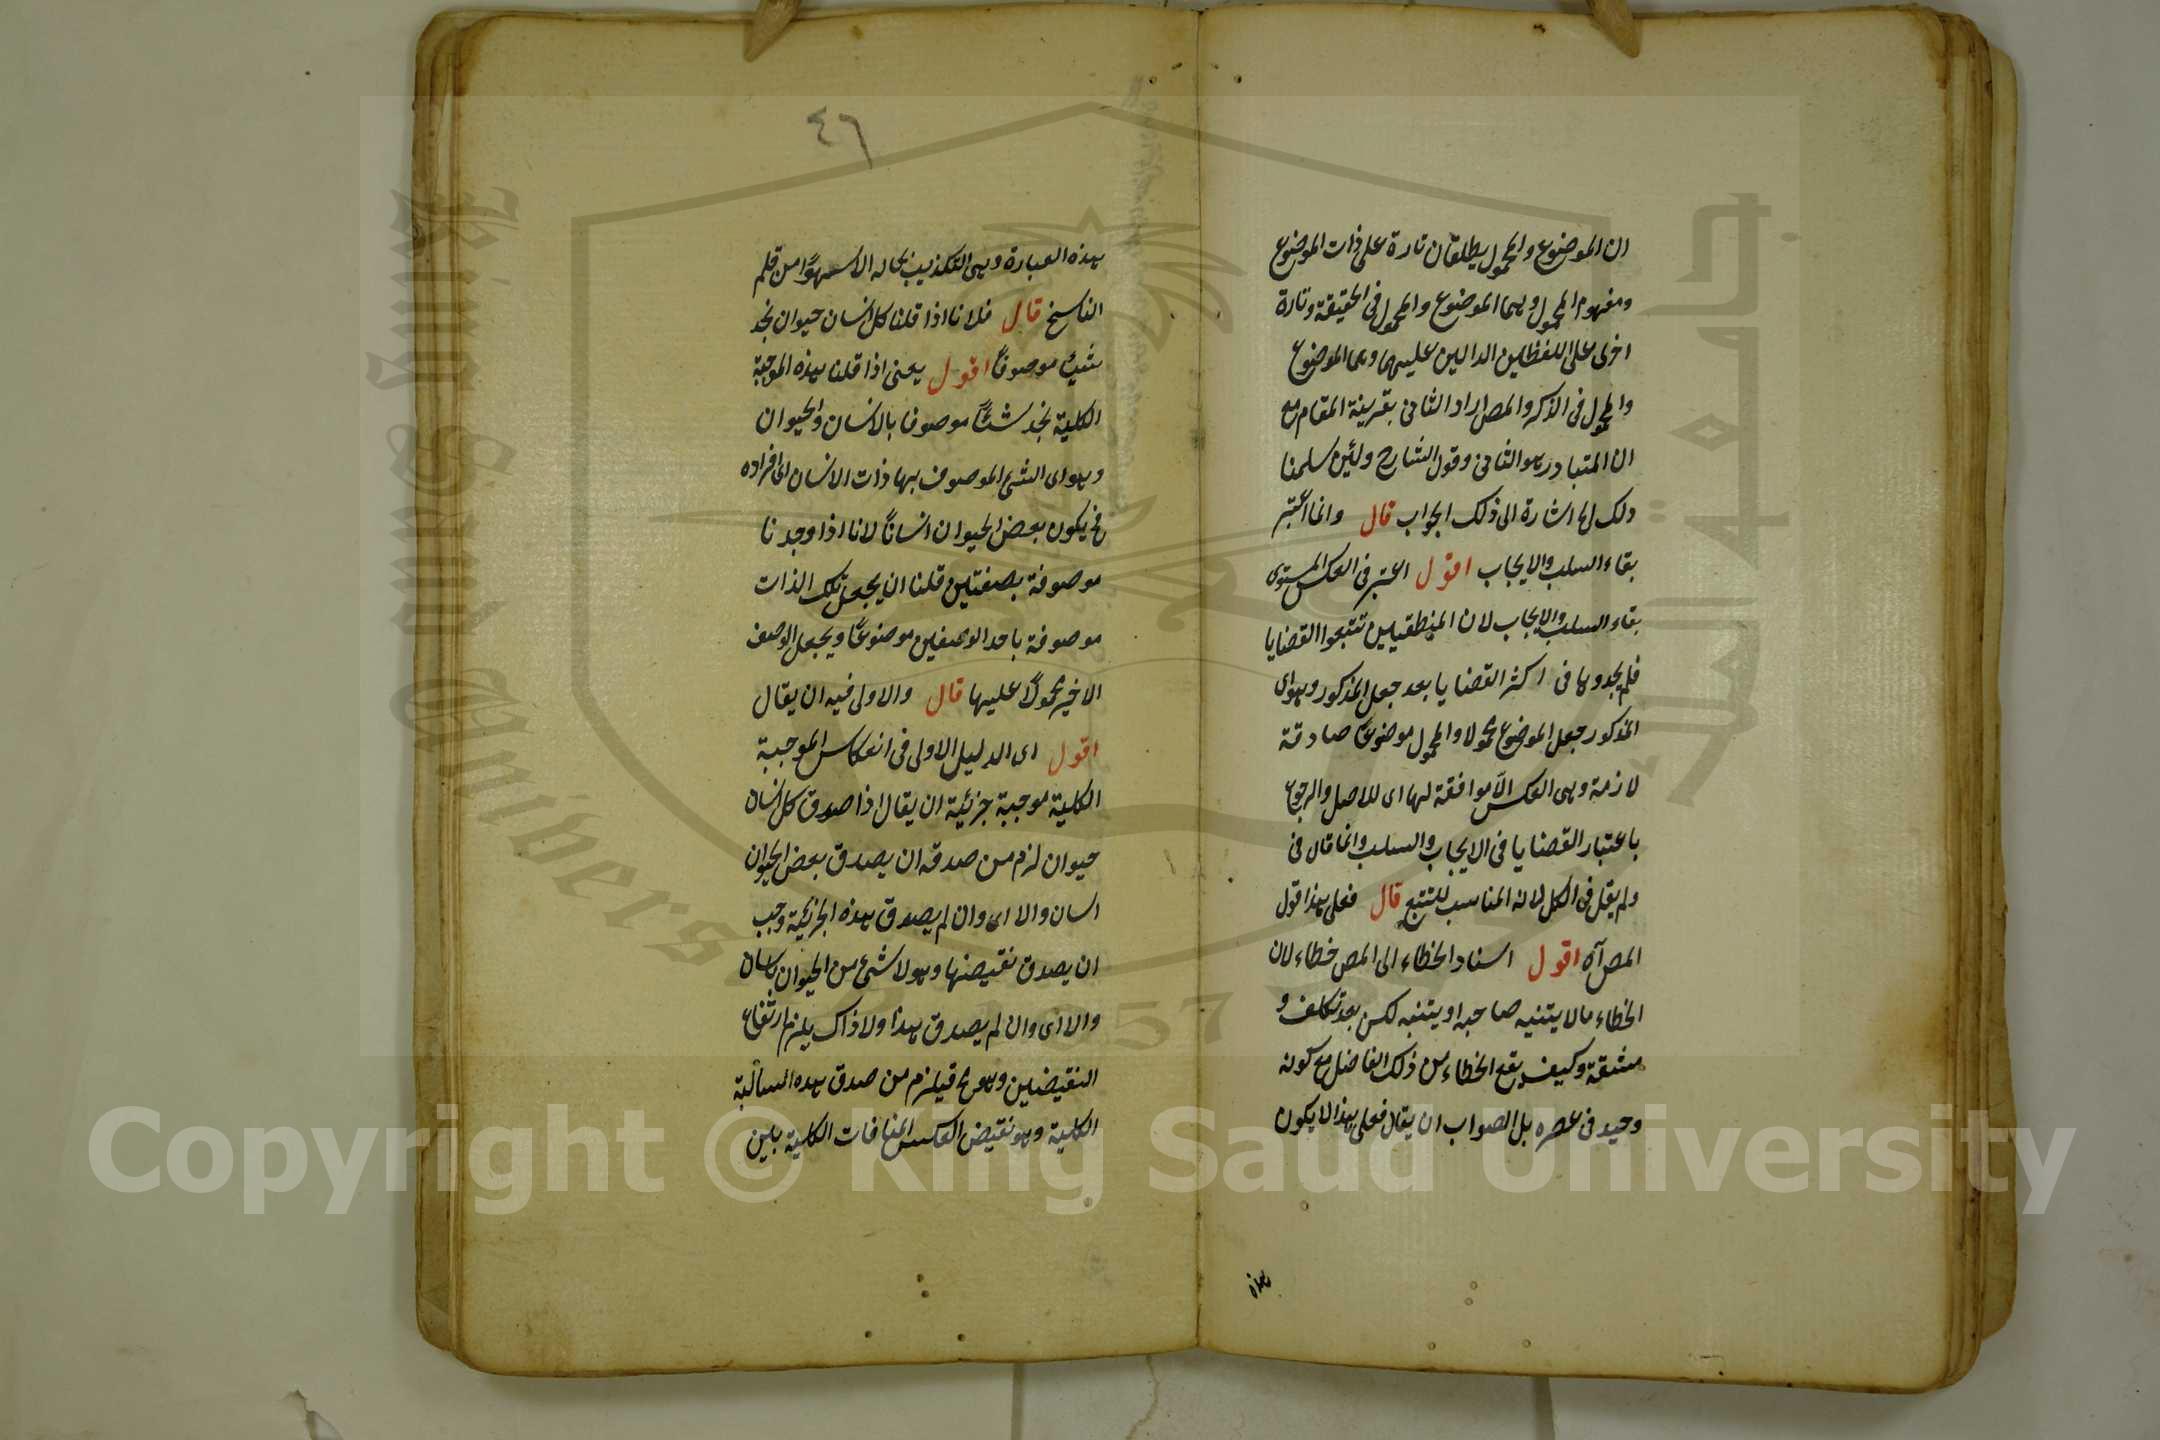 ان الموضوع والمحمول يطلقان تارة على ذات الموضوع
ومفهوم المحمول وهما الموضوع والمحمول فى الحقيقة وتارة
اخرى على اللفظين الدالين عليهما وهما الموضوع
والمحمول فى الذكر والمص اراد الثانى بقرينة المقام مع
ان المتبادر هو الثانى وقول الشارح ولئن سلمنا
ذلك اشارة الى ذلك الجواب قال وانما اعتبر
بقاء السلب والايجاب اقول اعتبر فى العكس المستوى
بقاء السلب والايجاب لان المنطقيين تتبعوا القضايا
فلم يجدوها فى اكثر القضايا بعد جعل المذكور وهو اى
المذكور جعل الموضوع محمولا والمحمول موضوعا صادقة
لازمة وهى العكس الا موافقة لها اى للاصل والرجوع
باعتبار القضايا فى الايجاب والسلب وانما قال فى
ولم يقل فى الكل لانه المناسب للتتبع قال فعلى هذا قول
المص آه اقول اسناد الخطاء الى المص خطاء لان
الخطاء ما لا يتنبه صاحبه او يتنبه لكن بعد تكلف و
مشقة وكيف يقع الخطاء من ذلك الفاضل مع كونه
وحيد فى عصره بل الصواب ان يقال فعلى هذا لا يكون
هذه
٤٦
بهذه العبارة وهى التكذيب بحاله الا سهوًا من قلم
الناسخ قال فلانا اذا قلنا كل انسان حيوان نجد
شيئا موصوفًا اقول يعنى اذا قلنا هذه الموجبة
الكلية نجد شيئًا موصوفا بالانسان والحيوان
وهو اى الشئ الموصوف بهما ذات الانسان اى افراده
فح يكون بعض الحيوان انسانًا لانا اذا وجدنا
موصوفة بصفتين قلنا ان يجعل تلك الذات
موصوفة باحد الوصفين موضوعًا ويجعل الوصف
الاخير محمولًا عليها قال والاولى فيه ان يقال
اقول اى الدليل الاولى فى انعكاس الموجبة
الكلية موجبة جزئية ان يقال اذا صدق كل انسان
حيوان لزم من صدقه ان يصدق بعض الحيوان
انسان والا اى وان لم يصدق هذه الجزئية وجب
ان يصدق نقيضها وهو لا شئ من الحيوان بانسان
والا اى وان لم يصدق هذا ولا ذاك يلزم ارتفاع
النقيضين وهو مح فيلزم من صدق هذه السالبة
الكلية وهو نقيض العكس المنافات الكلية بين
Copyright © King Saud University